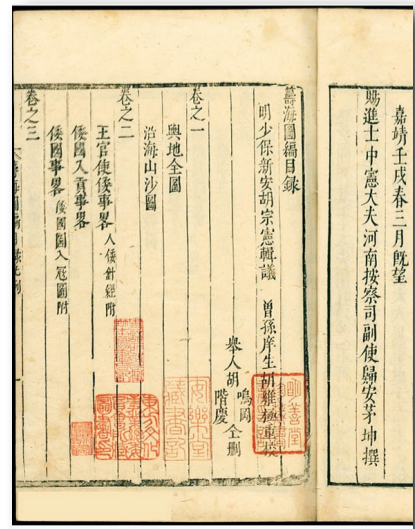 嘉靖壬戌春三月既望
賜進士中憲大夫河南按察司副使歸安茅坤撰
籌海圖編目録
明少保新安胡宗憲輯議　曾孫庠生胡維極重校
舉人胡　鳴岡　階慶　仝刪
卷之一
輿地全圖
沿海山沙圖
卷之二
王官使倭事畧　入倭針經附
倭國入貢事畧
倭國事畧　倭國圖入寇圖附
卷之三
明善堂
安樂堂藏書記